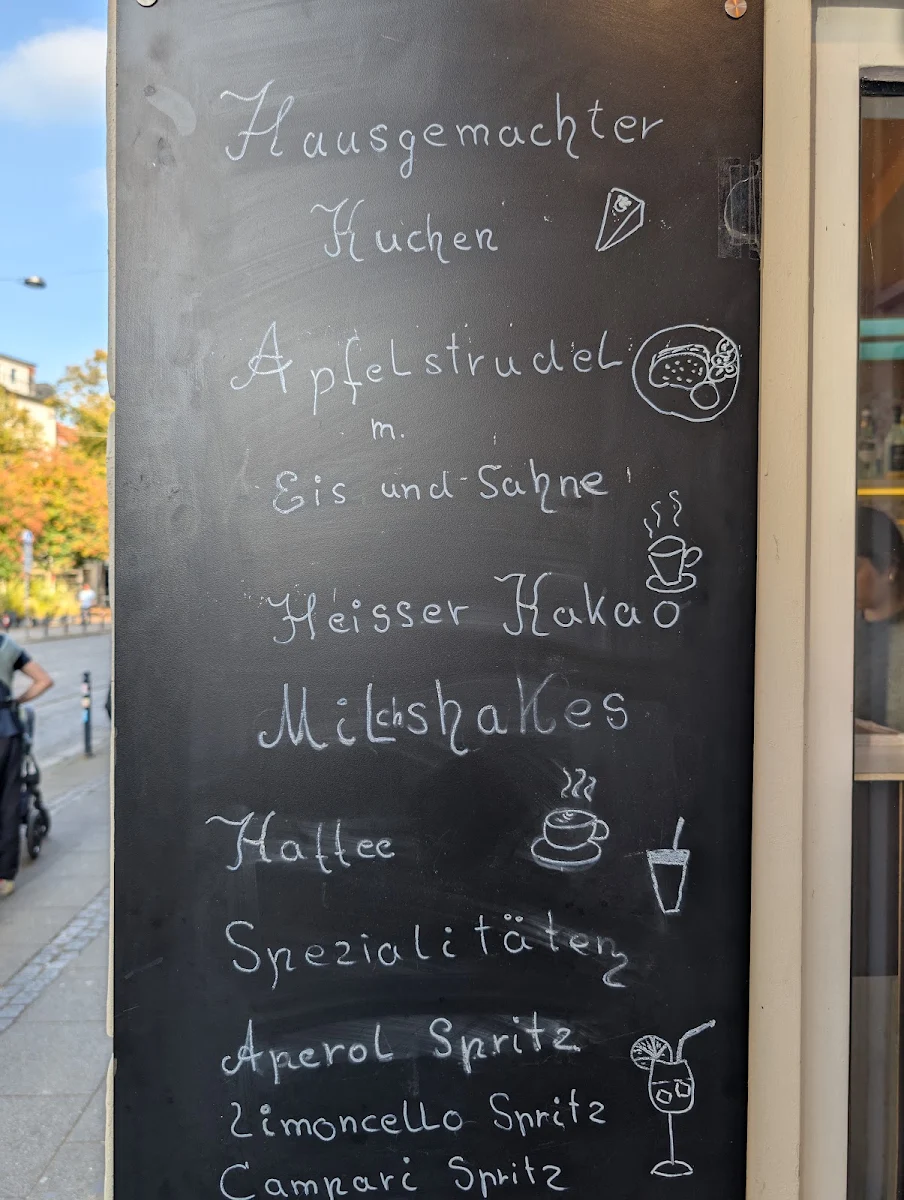 Hausgemachter
Kuchen
Apfelstrudel
m.
Eis und Sahne
Heisser Kakao
Milchshakes
Kaffee
Spezialitäten
Aperol Spritz
Limoncello Spritz
Campari Spritz